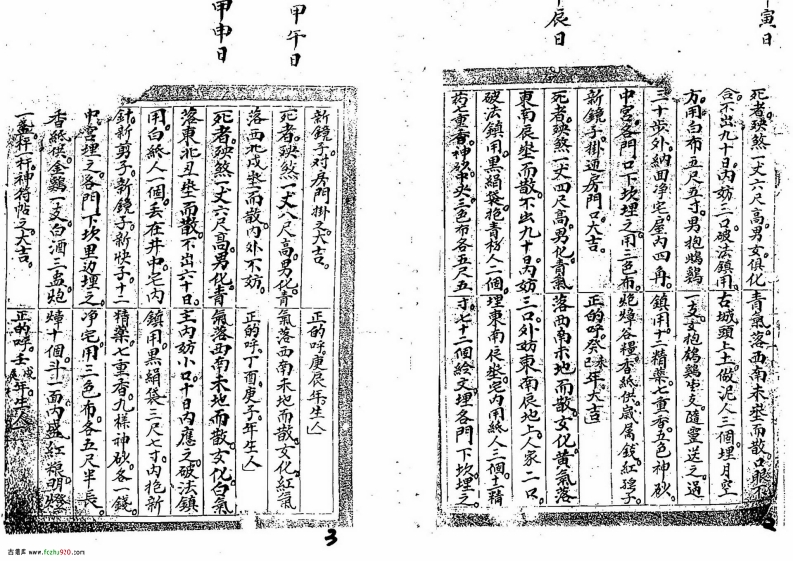 寅日
死者殃煞一丈六尺高男女俱化青氣落西南未坐而散口眼不
合不出九十日內妨二口破法鎮用古城頭上土做泥人三個埋月空
方用白布五尺五寸男抱鷄一支女抱鷄支隨靈送之過
三十步外納田净宅屋內四角鎮用十二精藥七重香五色神砂
中宮各門口下坎埋之用三色布香紙供
新鏡子掛迎房門口大吉正的呼癸未年大吉
辰日
死者殃煞一丈四尺高男化青氣落西南未地而散女化黃氣落
東南辰坐而散不出九十日內妨三口外妨東南辰地上人家二口
破法鎮用黑絹袋抱青衫人二個埋東南辰坐宅內用紙人三個土精
药七重香神砂中央三色布各五尺五寸七十二個絵文埋各門下坎埋之
2
甲午日
新鏡子对房門掛之大吉正的呼庚辰年生人
死者殃煞一丈八尺高男化青氣落西南未地而散女化紅氣
落西北戌坐而散內外不妨正的呼丁酉庚子年生人
甲申日
死者殃煞一丈六尺高男化青氣落西南未地而散女化白氣
落東北丑坐而散不出六十日主內妨小口十日內應之破法鎮
用白紙人一個丢在井中宅內鎮用黑絹袋三尺七寸內抱新
針新剪子新鏡子新快子十二精藥七重香九樣神砂各一錢
中宮埋之各門下坎里边埋之净宅用三色布各五尺半長
香紙供金鷄一支白酒三盅炮燁十個斗一面內盛紅粮明燈
一盏秤杆神符帖之大吉正的呼壬戌辰年生人
3
古籍库 www.fozhu920.com